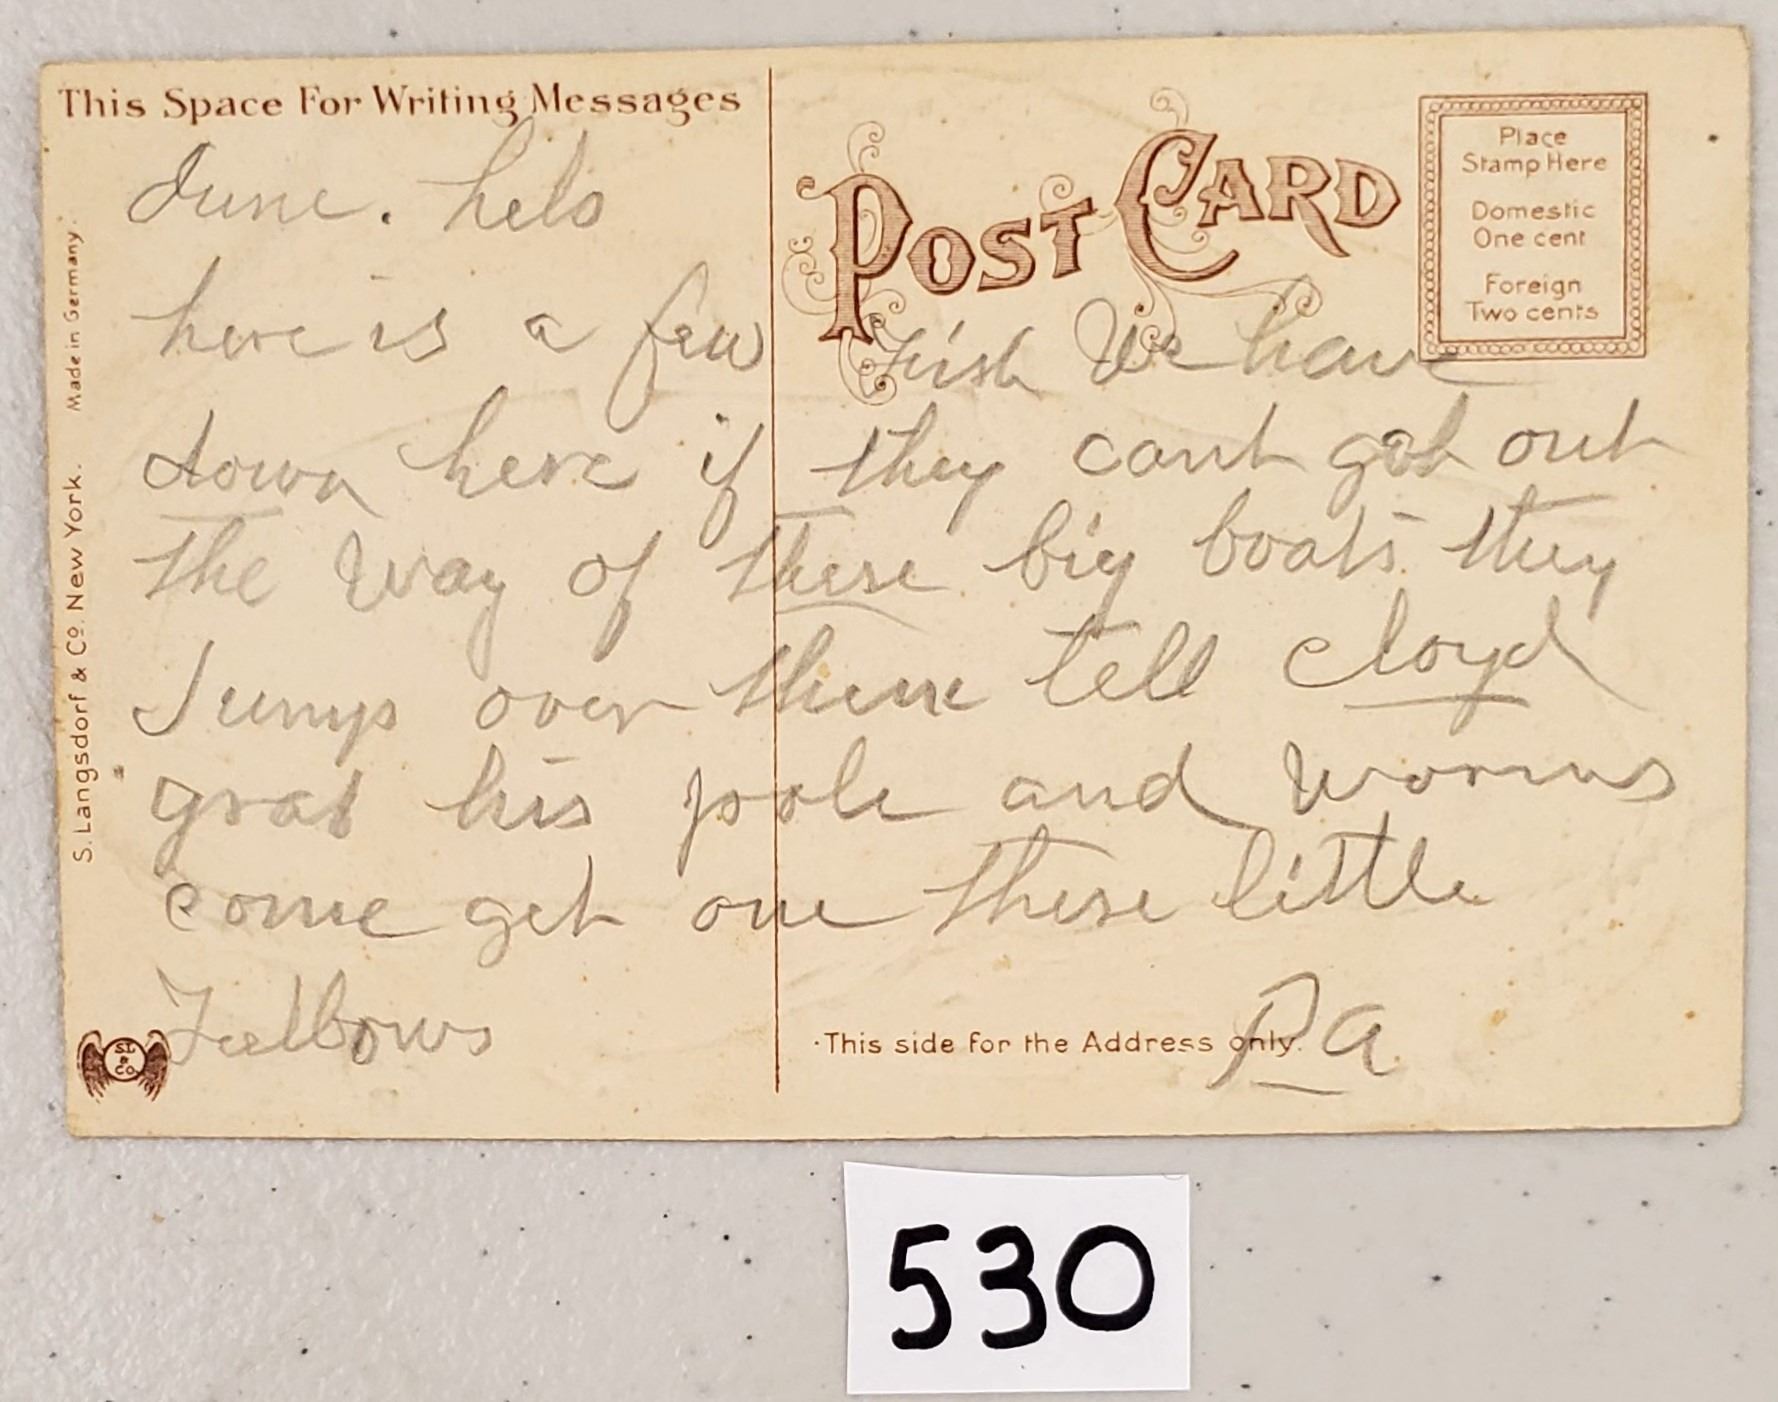 This Space For Writing Messages
POST CARD
Place
Stamp Here
Domestic
One cent
Foreign
Two cents
June. helo
here is a few fish We have
down here if they cant get out
the way of these big boats they
Jumps over them tell cloyd
grab his pole and worms
come get one these little
Fellows
Pa
This side for the Address only.
S. Langsdorf & Co. New York. Made in Germany.
S.L
&
Co.
530